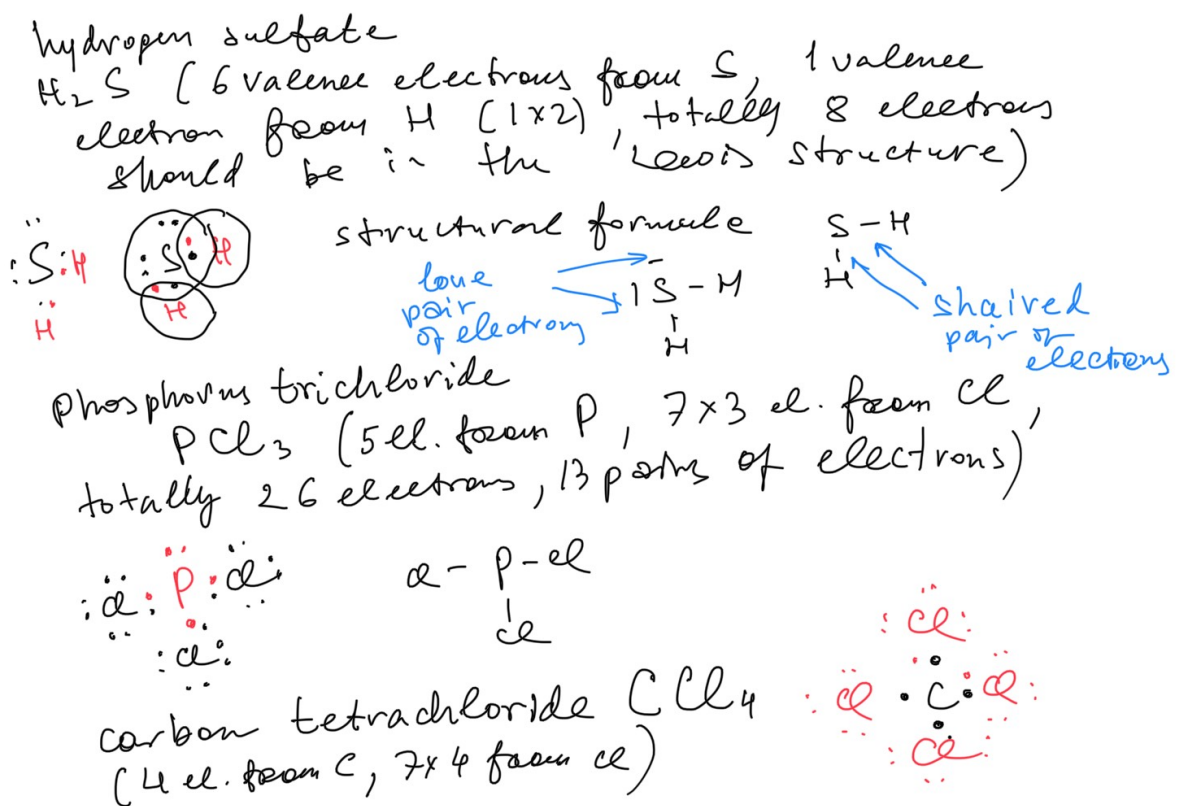 hydrogen sulfate
H₂S (6 valence electrons from S, 1 valence
electron from H (1×2), totally 8 electrons
should be in the Lewis structure)
structural formule
S–H
H
:S:H
H
S H
H
lone
pair
of electrons
|S–H
H
shaired
pair of
electrons
phosphorus trichloride
PCl₃ (5 el. from P, 7×3 el. from Cl,
totally 26 electrons, 13 pairs of electrons)
:Cl:P:Cl:
:Cl:
Cl–P–Cl
Cl
carbon tetrachloride CCl₄
(4 el. from C, 7×4 from Cl)
:Cl:
:Cl · C : Cl:
:Cl: